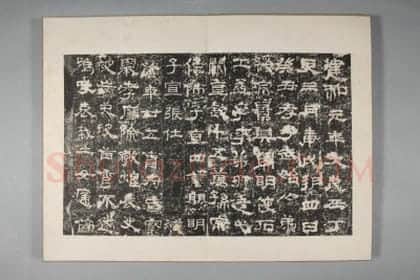 建和元年大歲在丁
亥三月庚戌朔四日
癸丑孝子武始公弟
綏宗景興開明使石
工孟孚李弟卯造此
闕直錢十五萬孫宗
作師子直四萬開明
子宣張仕濟
陰年廿五曹府君察
舉孝廉除敦煌長史
被病夭歿苗秀不遂
嗚呼哀哉士女痌傷